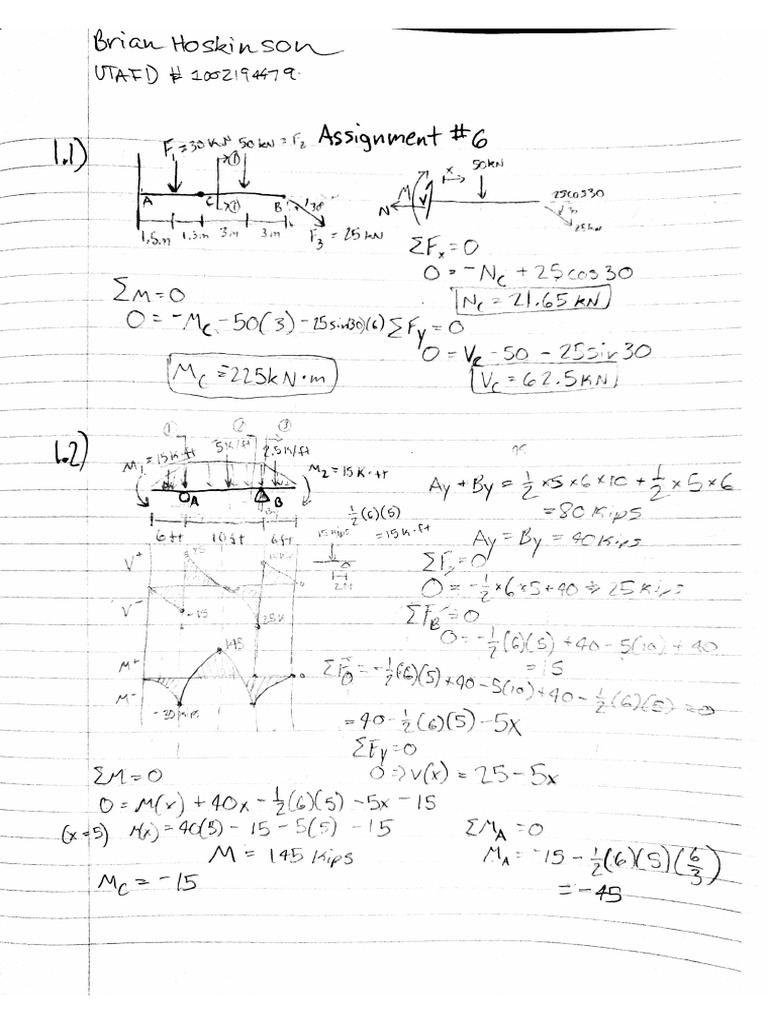 Brian Hoskinson
UTAID # 1002194479
Assignment #6
1.1)
F₁=30KN 50kN=F₂
A C B 30
1.5m 1.5m 3m 3m
F₃=25kN
M V N x 50kN
25cos30
25kN
ΣFₓ=0
0=-Nc+25cos30
Nc=21.65kN
ΣM=0
0=-Mc-50(3)-25sin30(6)
Mc=225kN·m
ΣFy=0
0=Vc-50-25sin30
Vc=62.5KN
1.2)
① ② ③
M₁=15K·ft 5K/ft 2.5K/ft
M₂=15K·ft
A B
6ft 10ft 6ft
½(6)(5)
=15K·ft
15kips
Ay+By=½×5×6×10+½×5×6
=80Kips
Ay=By=40Kips
ΣF=0
0=-½×6×5+40⇒25Kips
ΣF_B=0
0=-½(6)(5)+40-5(10)+40
=15
V⁺
V⁻
-15
25K
M⁺
M⁻
145
-30kips
ΣF=-½(6)(5)+40-5(10)+40-½(6)(5)=0
=40-½(6)(5)-5x
ΣFy=0
0⇒V(x)=25-5x
ΣM=0
0=M(x)+40x-½(6)(5)-5x-15
(x=5) M(x)=40(5)-15-5(5)-15
M=145Kips
Mc=-15
ΣM_A=0
M_A=-15-½(6)(5)(6/3)
=-45